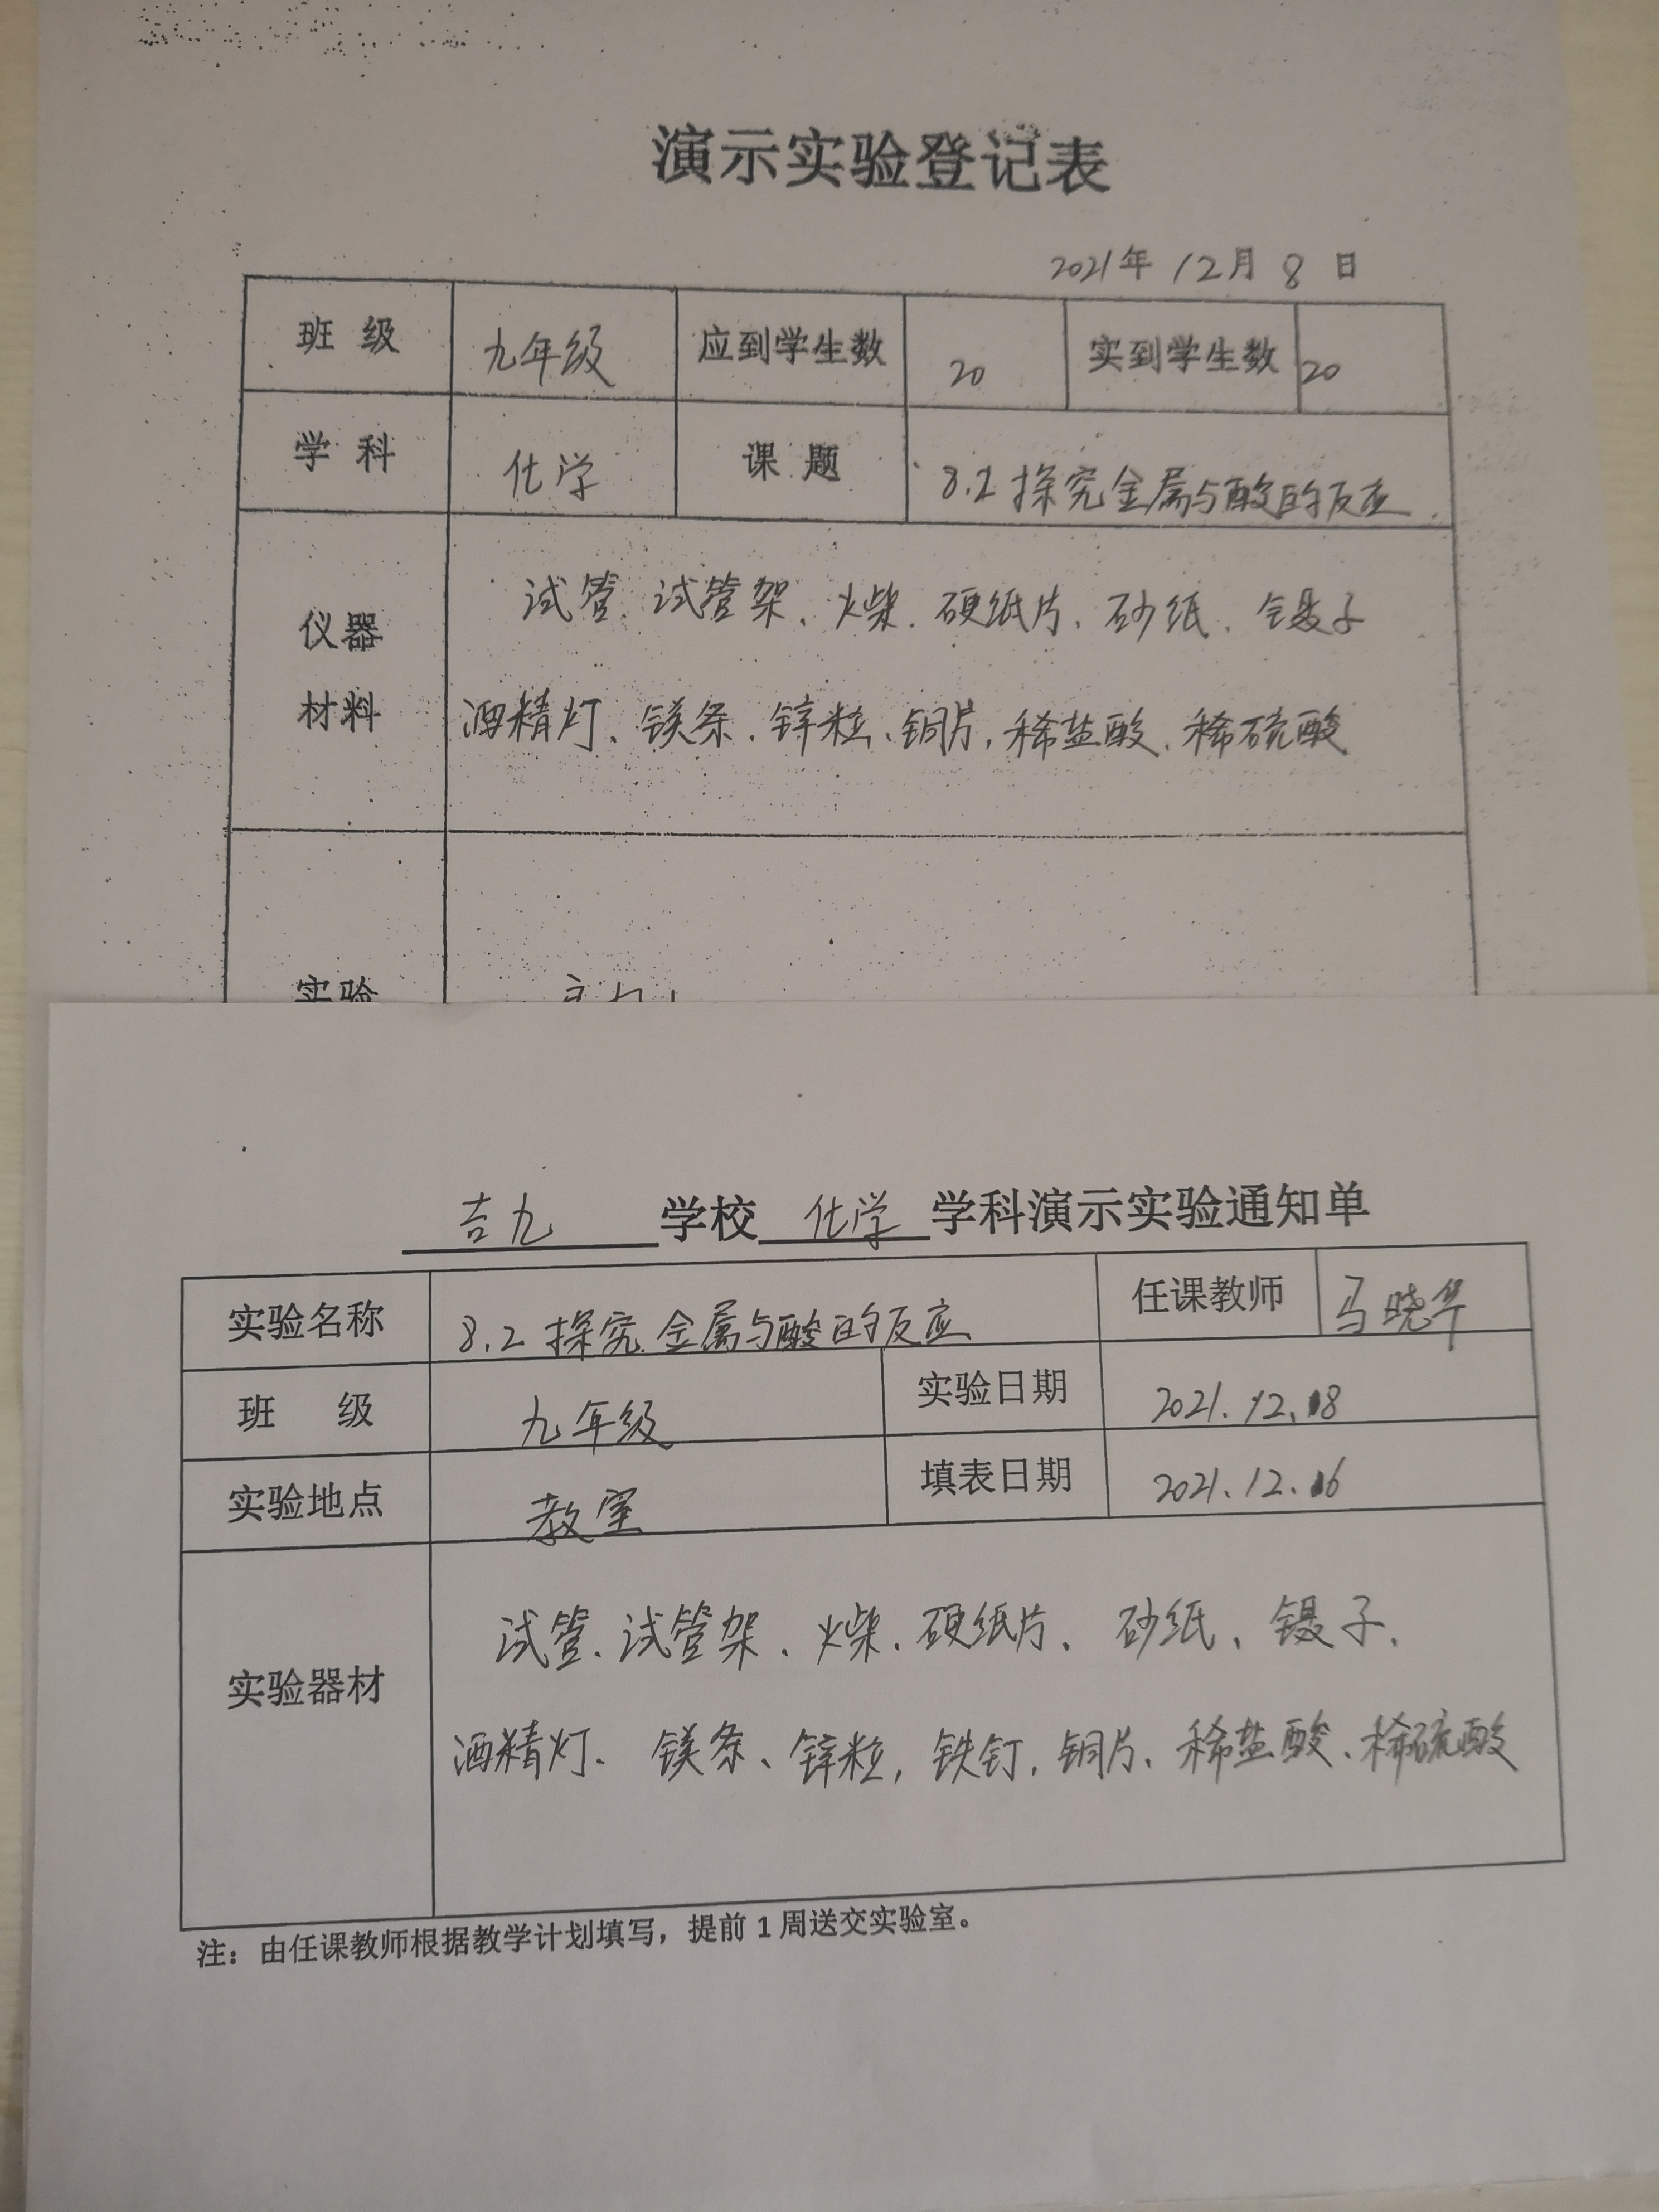 演示实验登记表
2021年 12月 8 日
班 级 九年级 应到学生数 20 实到学生数 20
学 科 化学 课 题 8.2 探究金属与酸的反应.
仪器
材料
试管、试管架、火柴、硬纸片、砂纸、镊子
酒精灯、镁条、锌粒、铜片,稀盐酸、稀硫酸
实验
吉九 学校 化学 学科演示实验通知单
实验名称 8.2 探究金属与酸的反应 任课教师 马晓华
班 级 九年级 实验日期 2021.12.8
实验地点 教室 填表日期 2021.12.6
实验器材
试管、试管架、火柴、硬纸片、砂纸、镊子、
酒精灯、镁条、锌粒,铁钉,铜片、稀盐酸、稀硫酸
注：由任课教师根据教学计划填写，提前 1 周送交实验室。